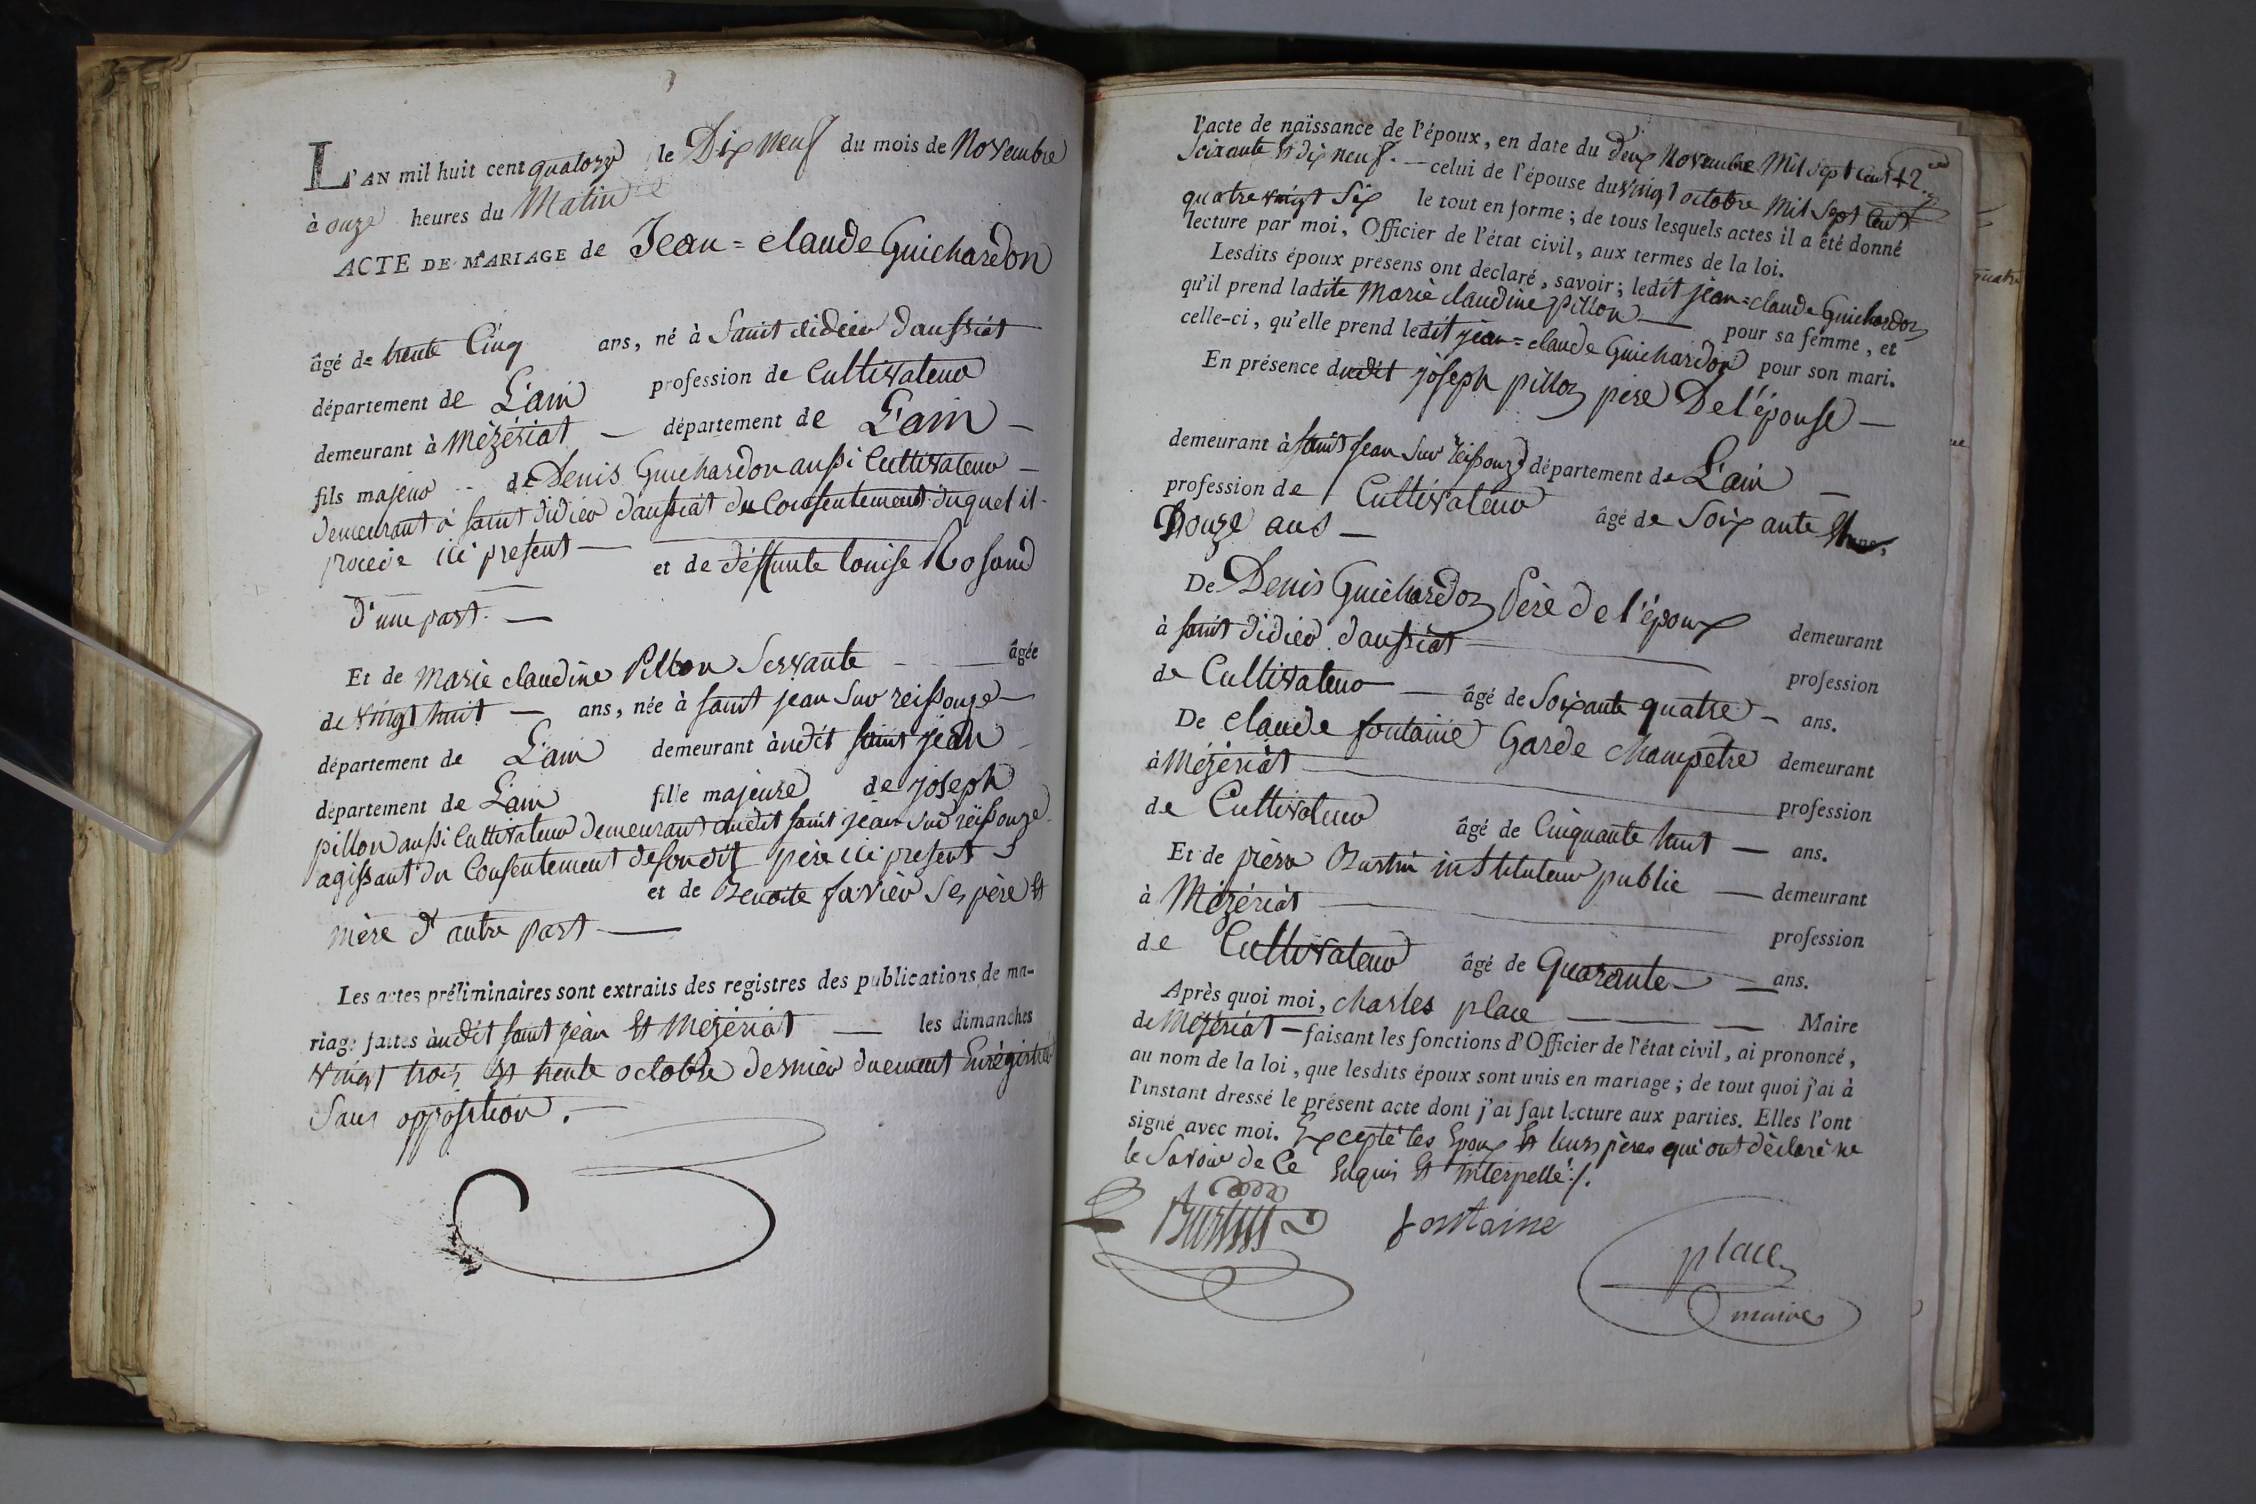 L'AN mil huit cent quatorze le Dix neuf du mois de Novembre
à onze heures du Matin
ACTE DE MARIAGE de Jean=claude Guichardon
âgé de trente Cinq ans, né à Saint didier daussiat
département de L'ain profession de Cultivateur
demeurant à Mézériat — département de L'ain —
fils majeur de Denis Guichardon aussi Cultivateur —
demeurant à saint didier daussiat du Consentement duquel il
procède ici présent — et de déffunte louise Rosand
d'une part. —
Et de Marie claudine Pillon Servante — âgée
de vingt huit — ans, née à saint jean sur reissouze —
département de L'ain demeurant àudit saint jean
département de L'ain fille majeure de joseph
pillon aussi Cultivateur demeurant audit saint jean sur reissouze
agissant du Consentement desondit père ici présent
et de Benoite favier ses père et
mère d'autre part —
Les actes préliminaires sont extraits des registres des publications de ma-
riage faites àudit saint jean et Mézériat — les dimanches
vingt trois et trente octobre dernier duement Enrégistrés
Sans opposition. —
l'acte de naissance de l'époux, en date du deux Novembre Mil sept cent
soixante et dix neuf. — celui de l'épouse du vingt octobre Mil Sept Cent
quatre vingt Six le tout en forme; de tous lesquels actes il a été donné
lecture par moi, Officier de l'état civil, aux termes de la loi.
Lesdits époux présens ont déclaré, savoir; ledit jean=claude Guichardon
qu'il prend ladite Marie claudine pillon — pour sa femme, et
celle-ci, qu'elle prend ledit jean=claude Guichardon pour son mari.
En présence dudit joseph pillon père De l'épouse —
demeurant à saint jean sur reissouze département de L'ain —
profession de Cultivateur âgé de Soixante et
Douze ans —
De Denis Guichardon Père de l'époux demeurant
à saint didier daussiat — profession
de Cultivateur — âgé de Soixante quatre — ans.
De claude fontaine Garde champetre demeurant
à Mézériat — profession
de Cultivateur âgé de Cinquante huit — ans.
Et de pierre Burtin instituteur public — demeurant
à Mézériat — profession
de Cultivateur âgé de Quarante — ans.
Après quoi moi, charles place — Maire
de Mézériat — faisant les fonctions d'Officier de l'état civil, ai prononcé,
au nom de la loi, que lesdits époux sont unis en mariage; de tout quoi j'ai à
l'instant dressé le présent acte dont j'ai fait lecture aux parties. Elles l'ont
signé avec moi. Excepté les Epoux et leurs pères qui ont déclaré ne
le Savoir de ce Enquis et interpellé ./.
Burtin fontaine place
maire